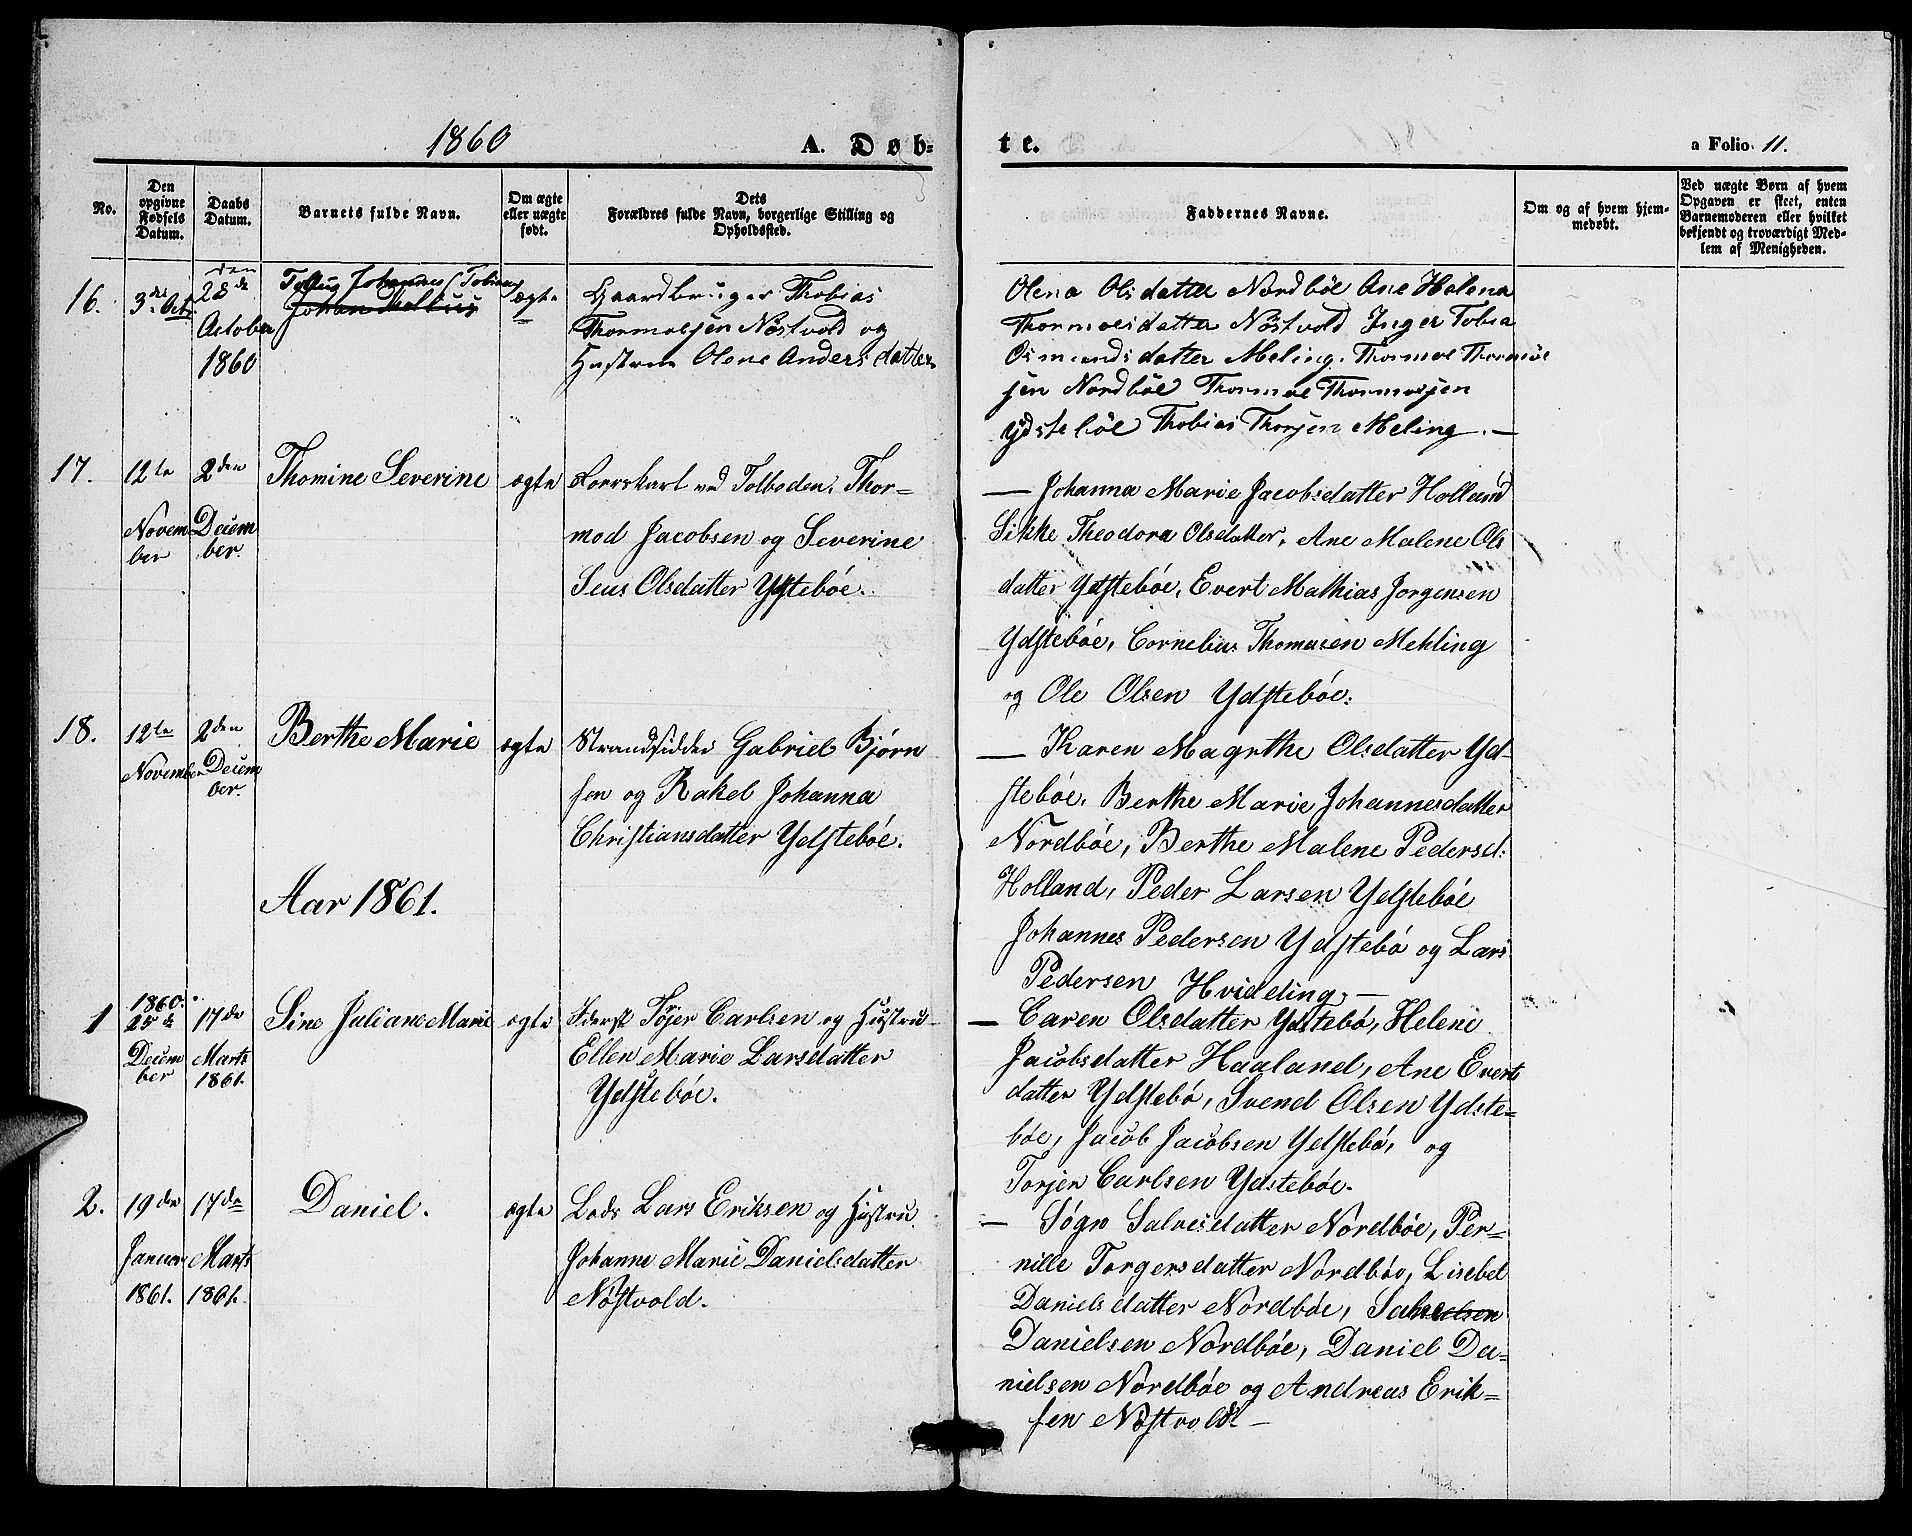 1860
A. Døb-
te.
a Folio 11.
No.
Den
opgivne
Fødsels
Datum.
Daabs
Datum.
Barnets fulde Navn.
Om ægte
eller uægte
født.
Dets
Forældres fulde Navn, borgerlige Stilling og
Opholdssted.
Faddernes Navne.
Om og af hvem hjem-
medøbt.
Ved uægte Børn af hvem
Opgaven er skeet, enten
Barnemoderen eller hvilket
bekjendt og troværdigt Med-
lem af Menigheden.
16.
3die Octb
den
28de
October
1860
Johannes (Tobias
Johan
ægte
Gaardbruger Thobias
Thormoesen Nöstvold og
Hustrue Olene Andersdatter
Olena Olsdatter Nordböe Ane Helena
Thormoesdatter Nöstvold Inger Tobia
Osmundsdatter Meling. Thormoe Thormoe
sen Nordböe Thormoe Thormoesen
Ydsteböe Thobias Thorsen Meling. —
17.
12te
Novem
ber
2den
Decem
ber.
Thomine Severine
ægte
ved Tolboden, Thor-
mod Jacobsen og Severine
Seus Olsdatter Ydsteböe.
— Johanna Marie Jacobsdatter Holland
Sikke Theodora Olsdatter, Ane Malene Ols
datter Ydsteböe, Evert Mathias Jorgensen
Ydsteböe, Cornelius Thomasen Mehling
og Ole Olsen Ydsteböe.
18.
12te
November
2den
Decem
ber.
Berthe Marie
ægte
Strandsidder Gabriel Bjørn
sen og Rakel Johanna
Christiansdatter Ydsteböe.
— Karen Magrthe Olsdatter Yd-
steböe, Berthe Marie Johannesdatter
Nordböe, Berthe Malene Pedersd:
Holland, Peder Larsen Ydsteböe
Johannes Pedersen Ydstebö og Lars
Pedersen Hvideling. —
Aar 1861.
1
1860.
25de
Decem
ber
17de
Marts
1861.
Sine Juliane Marie
ægte
Töjer Carlsen og Hustru
Ellen Marie Larsdatter
Ydsteböe.
— Caren Olsdatter Ydstebö, Helene
Jacobsdatter Haaland, Ane Everts
datter Ydstebö, Svend Olsen Ydste-
böe, Jacob Jacobsen Ydstebö, og
Torjer Carlsen Ydsteböe.
2.
19den
Januar
1861.
17de
Marts
1861.
Daniel.
ægte
Lods Lars Eriksen og Hustru
Johanne Marie Danielsdatter
Nöstvold.
— Sögn Salvesdatter Nordböe, Per-
nille Torgersdatter Nordböe, Lisebet
Danielsdatter Nordböe,
Danielsen Nordböe, Daniel Da-
nielsen Nordböe og Andreas Erik-
sen Nöstvold —